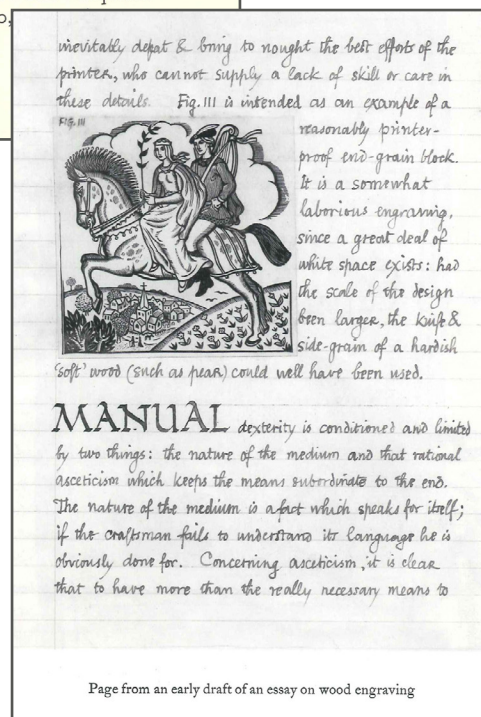 o,
inevitably defeat & bring to nought the best efforts of the
printer, who cannot supply a lack of skill or care in
these details. Fig. III is intended as an example of a
FIG. III
reasonably printer-
proof end-grain block.
It is a somewhat
laborious engraving,
since a great deal of
white space exists: had
the scale of the design
been larger, the knife &
side-grain of a hardish
'soft' wood (such as pear) could well have been used.
MANUAL dexterity is conditioned and limited
by two things: the nature of the medium and that rational
asceticism which keeps the means subordinate to the end.
The nature of the medium is a fact which speaks for itself;
if the craftsman fails to understand its language he is
obviously done for. Concerning asceticism, it is clear
that to have more than the really necessary means to
Page from an early draft of an essay on wood engraving